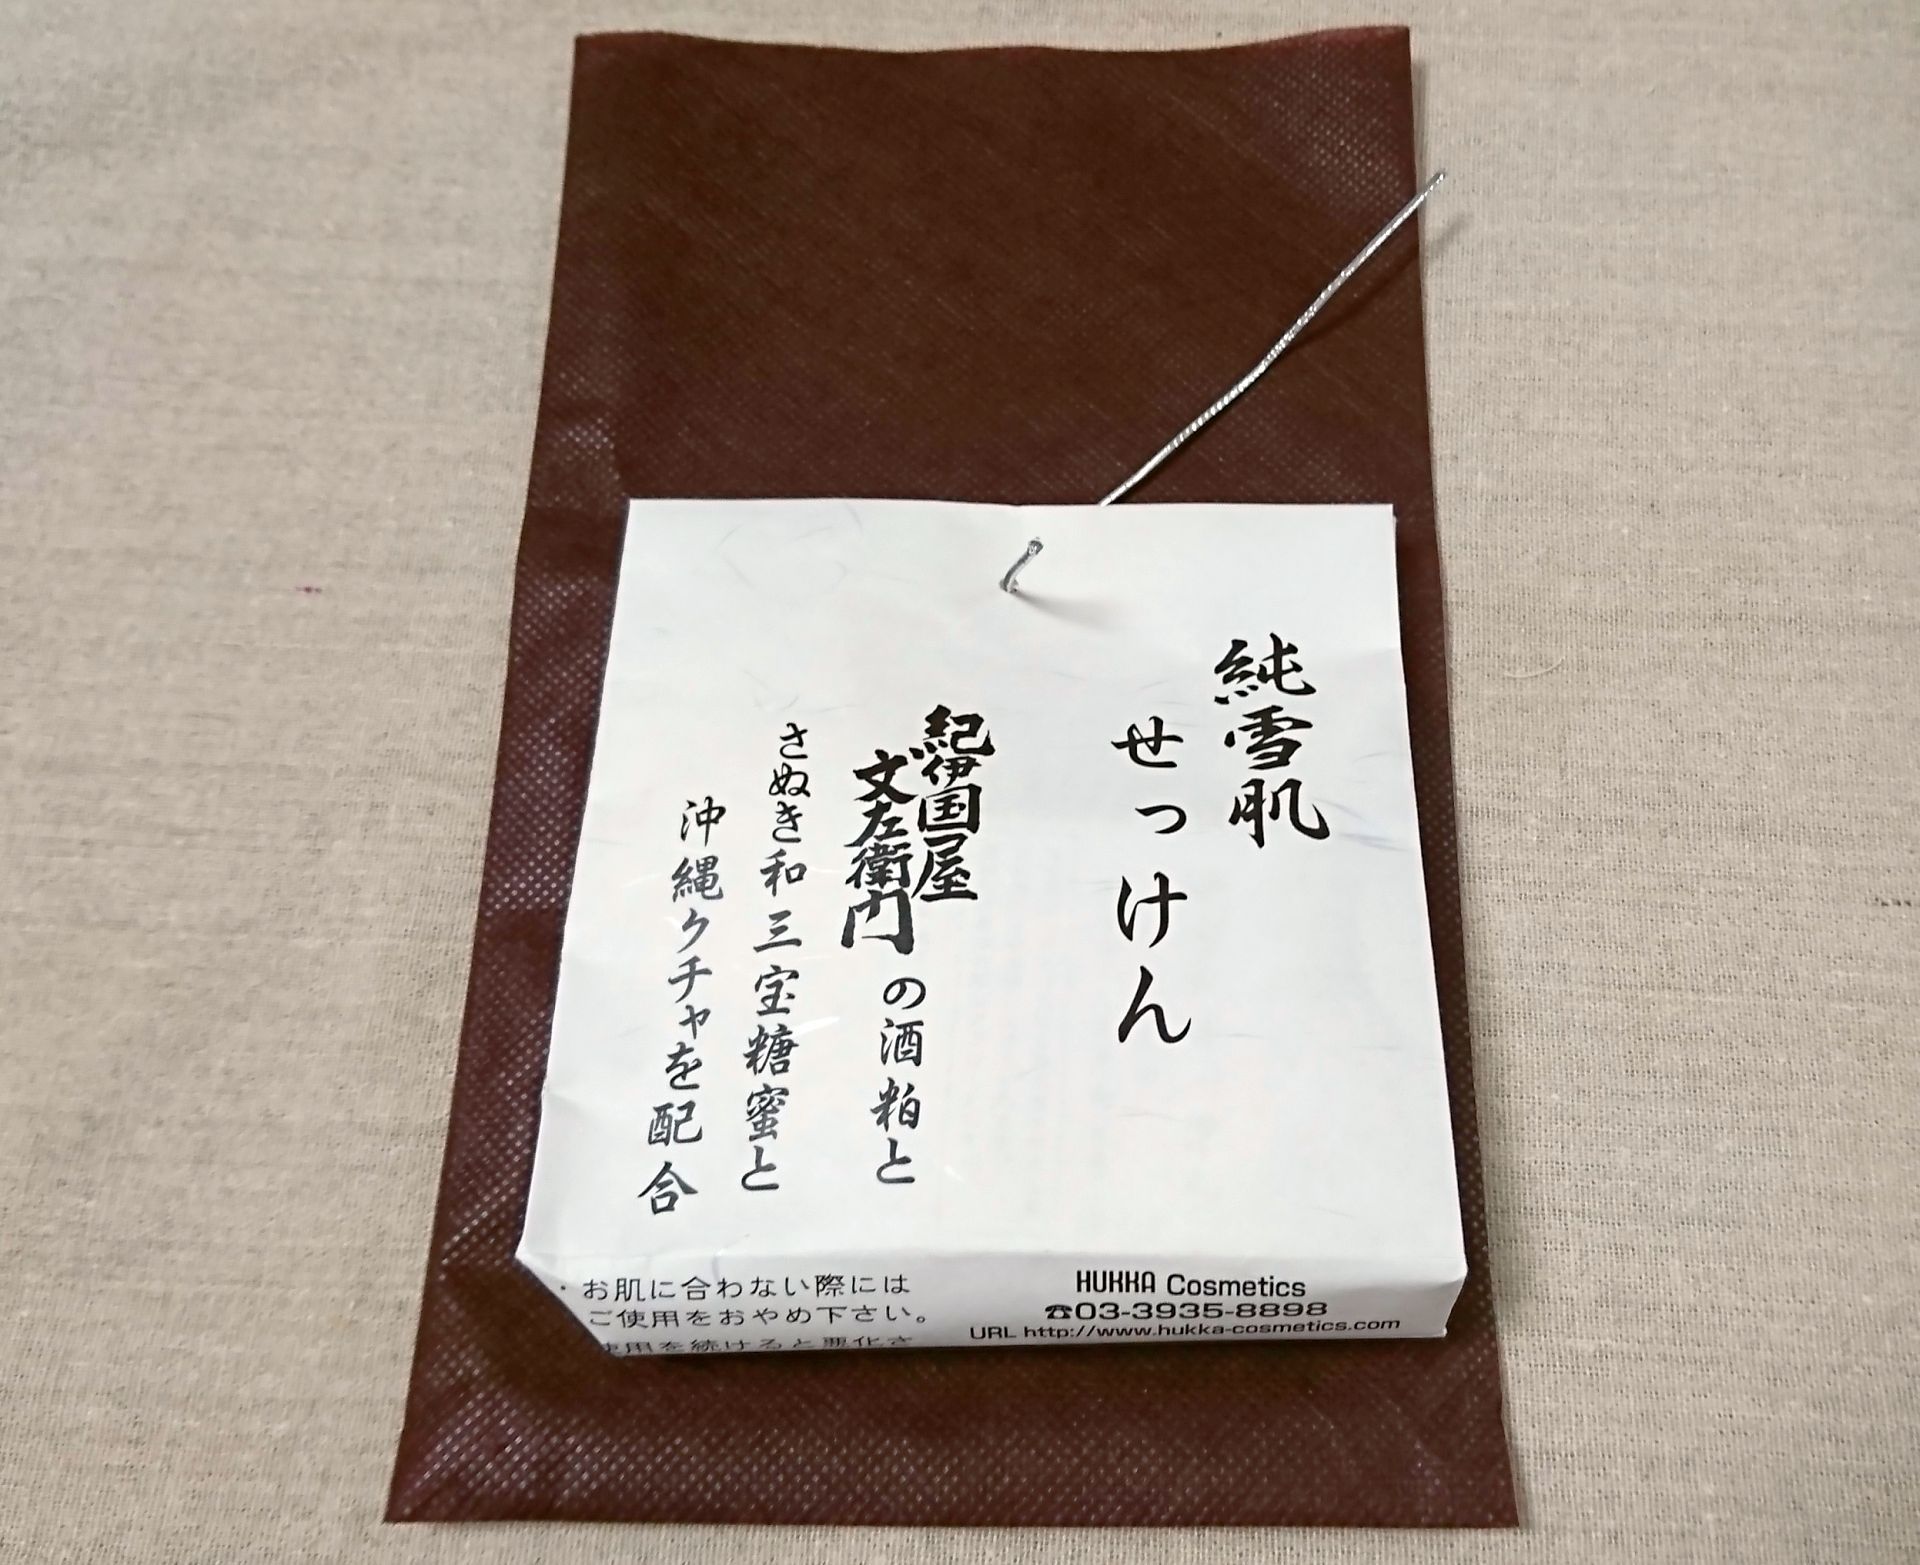 純雪肌
せっけん
紀伊国屋
文左衛門の酒粕と
さぬき和三宝糖蜜と
沖縄クチャを配合
・お肌に合わない際には
ご使用をおやめ下さい。
使用を続けると悪化さ
HUKKA Cosmetics
☎03-3935-8898
URL http://www.hukka-cosmetics.com